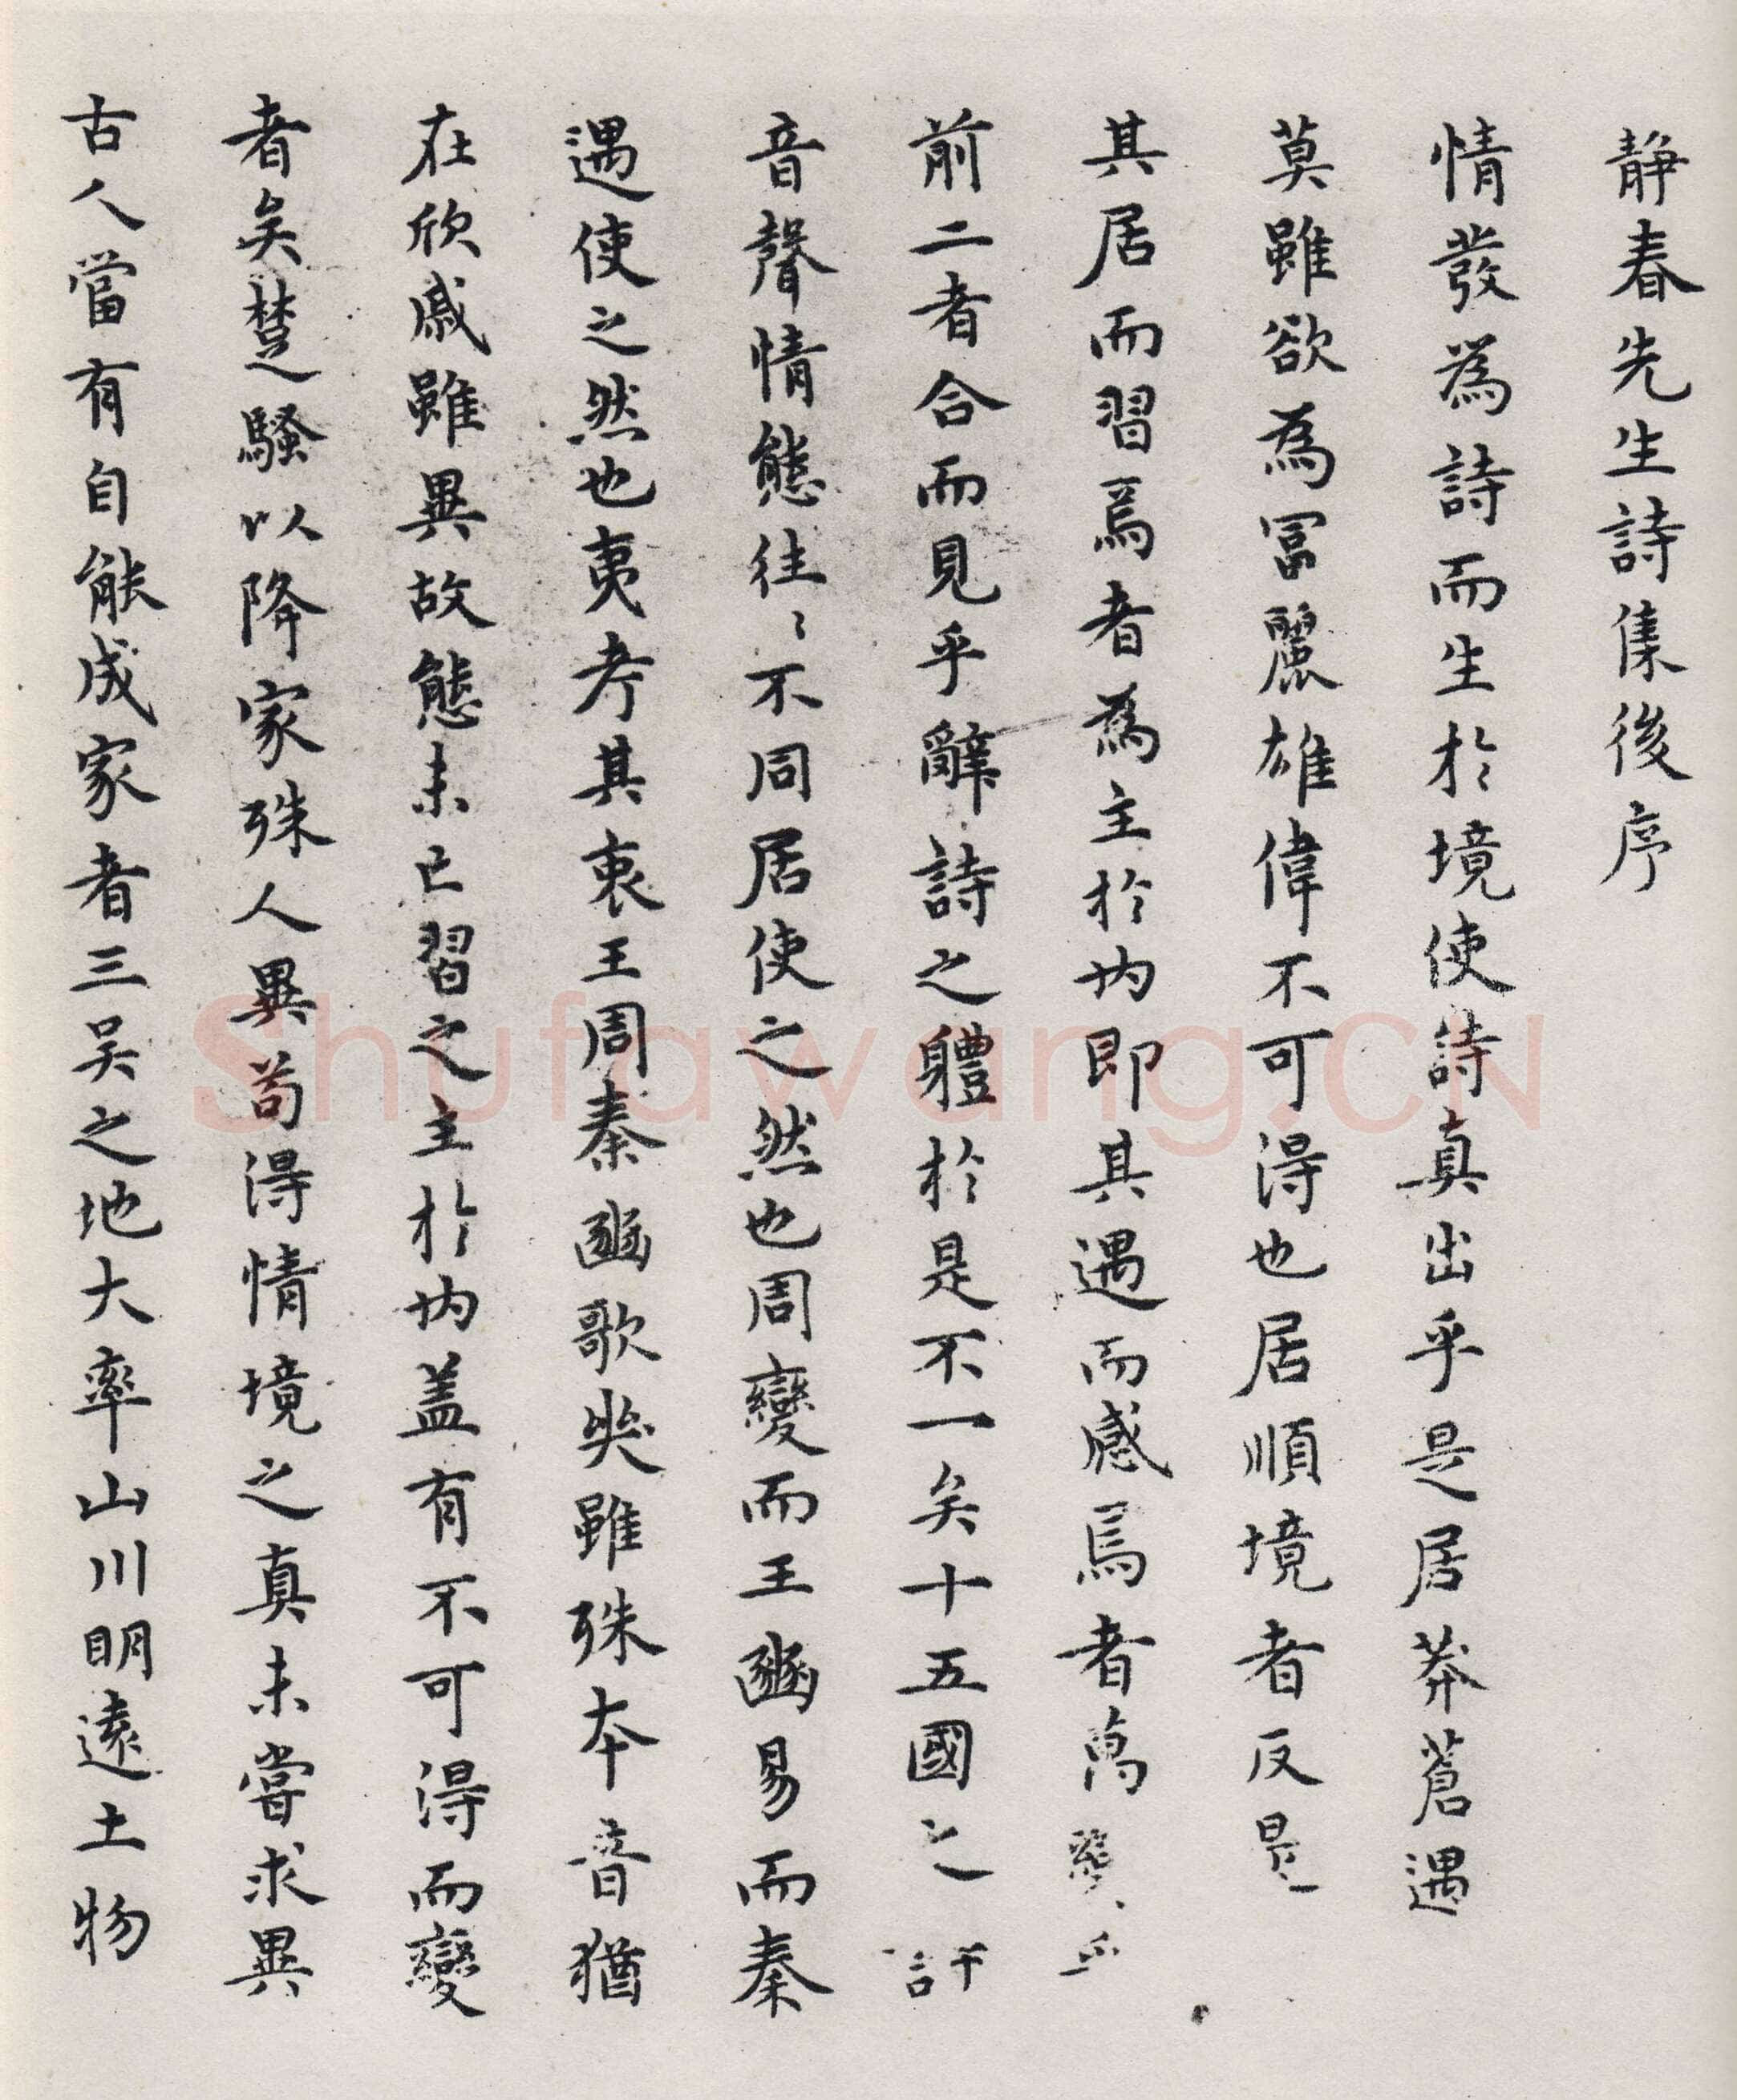 静春先生詩集後序
情發為詩而生於境使詩真出乎是居莽蒼遇
莫雖欲為冨麗雄偉不可得也居順境者反是
其居而習焉者為主於内即其遇而感焉者萬
前二者合而見乎辭詩之軆於是不一矣十五國之
音聲情態徃〻不同居使之然也周變而王豳易而秦
遇使之然也夷考其衷王周秦豳歌哭雖殊本音猶
在欣戚雖異故態未已習之主於内盖有不可得而變
者矣楚騷以降家殊人異茍得情境之真未嘗求異
古人當有自能成家者三吴之地大率山川明遠土物
Shufawang.CN